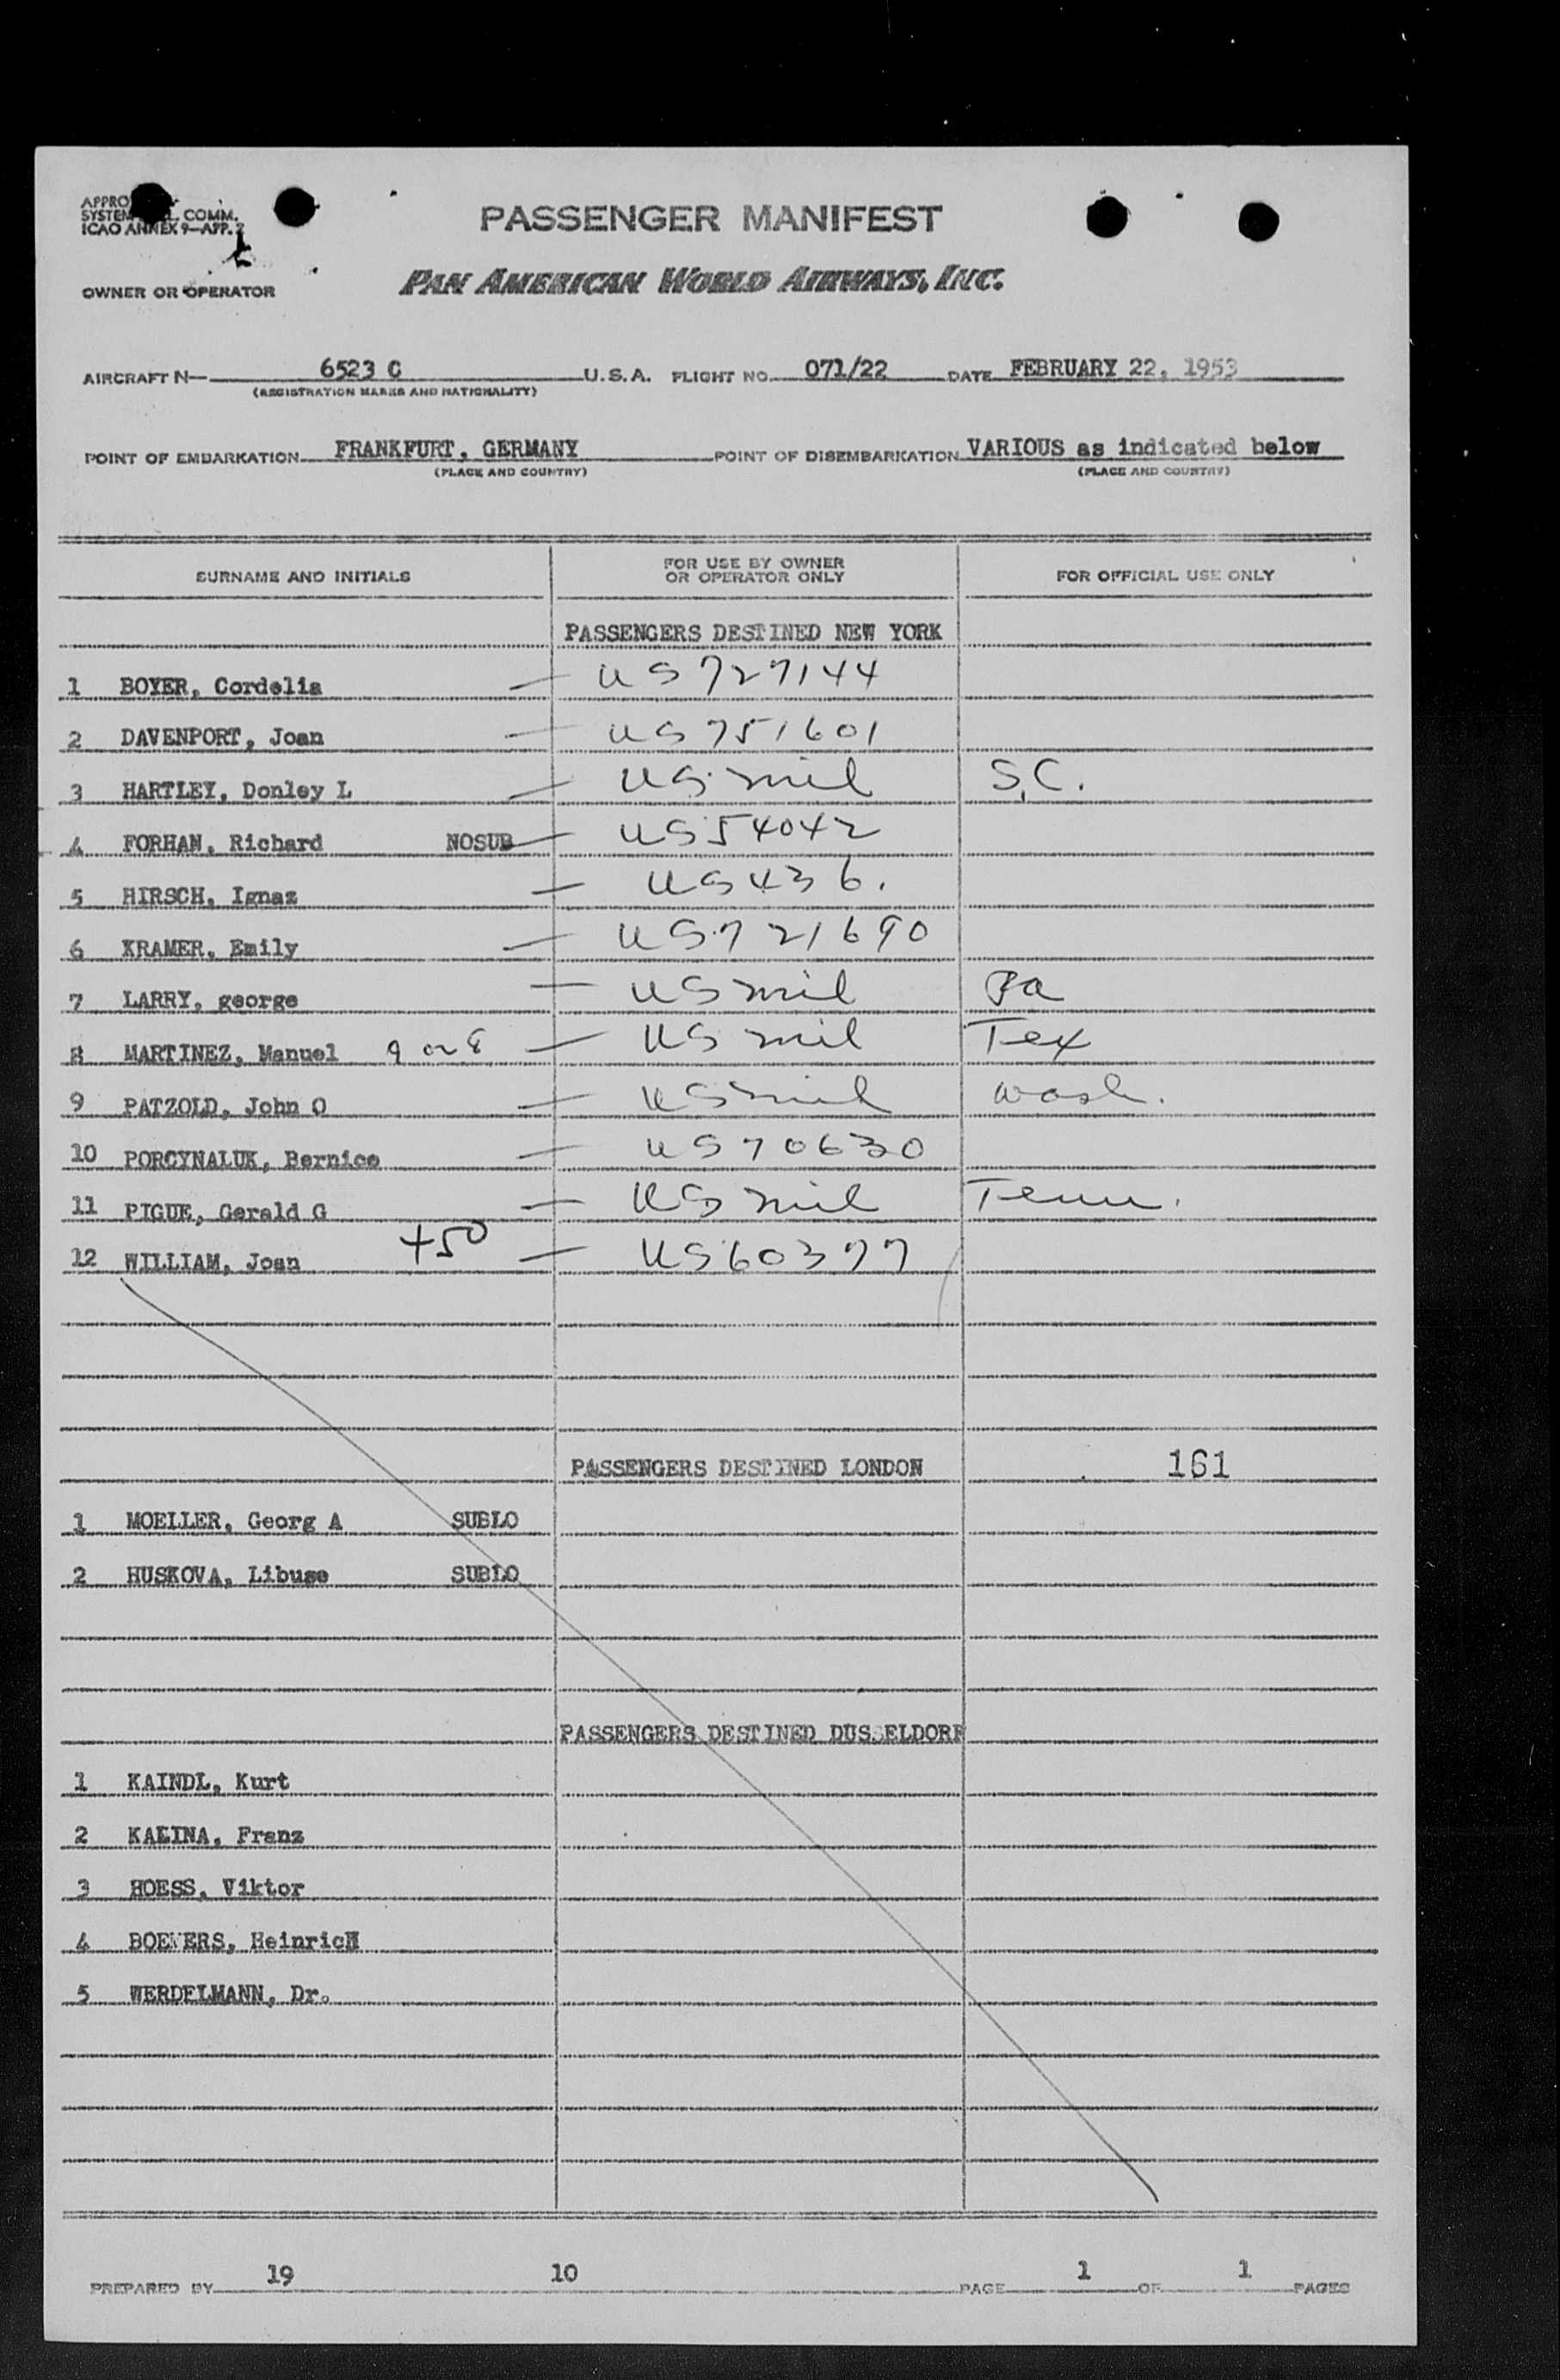 PASSENGER MANIFEST
SYSTEM COMM.
ICAO ANNEX 9—APP. 2
OWNER OR OPERATOR PAN AMERICAN WORLD AIRWAYS, INC.
AIRCRAFT N— 6523 C U.S.A. FLIGHT NO. 071/22 DATE FEBRUARY 22, 1953
(REGISTRATION MARKS AND NATIONALITY)
POINT OF EMBARKATION FRANKFURT, GERMANY POINT OF DISEMBARKATION VARIOUS as indicated below
(PLACE AND COUNTRY) (PLACE AND COUNTRY)
SURNAME AND INITIALS FOR USE BY OWNER OR OPERATOR ONLY FOR OFFICIAL USE ONLY
PASSENGERS DESTINED NEW YORK
1 BOYER, Cordelia — US 727144
2 DAVENPORT, Joan — US 751601
3 HARTLEY, Donley L — US mil S.C.
4 FORHAN, Richard NOSUB — US 54042
5 HIRSCH, Ignaz — US 436.
6 KRAMER, Emily — US 721690
7 LARRY, george — US mil Pa
8 MARTINEZ, Manuel — US mil Tex
9 PATZOLD, John O — US mil Wash.
10 PORCYNALUK, Bernice — US 70630
11 PIGUE, Gerald G — US mil Tenn.
12 WILLIAM, Joan +50 — US 60377
PASSENGERS DESTINED LONDON 161
1 MOELLER, Georg A SUBLO
2 HUSKOVA, Libuse SUBLO
PASSENGERS DESTINED DUSSELDORF
1 KAINDL, Kurt
2 KALINA, Franz
3 HOESS, Viktor
4 BOEWERS, HeinricH
5 WERDELMANN, Dr.
PREPARED BY 19 10 PAGE 1 OF 1 PAGES